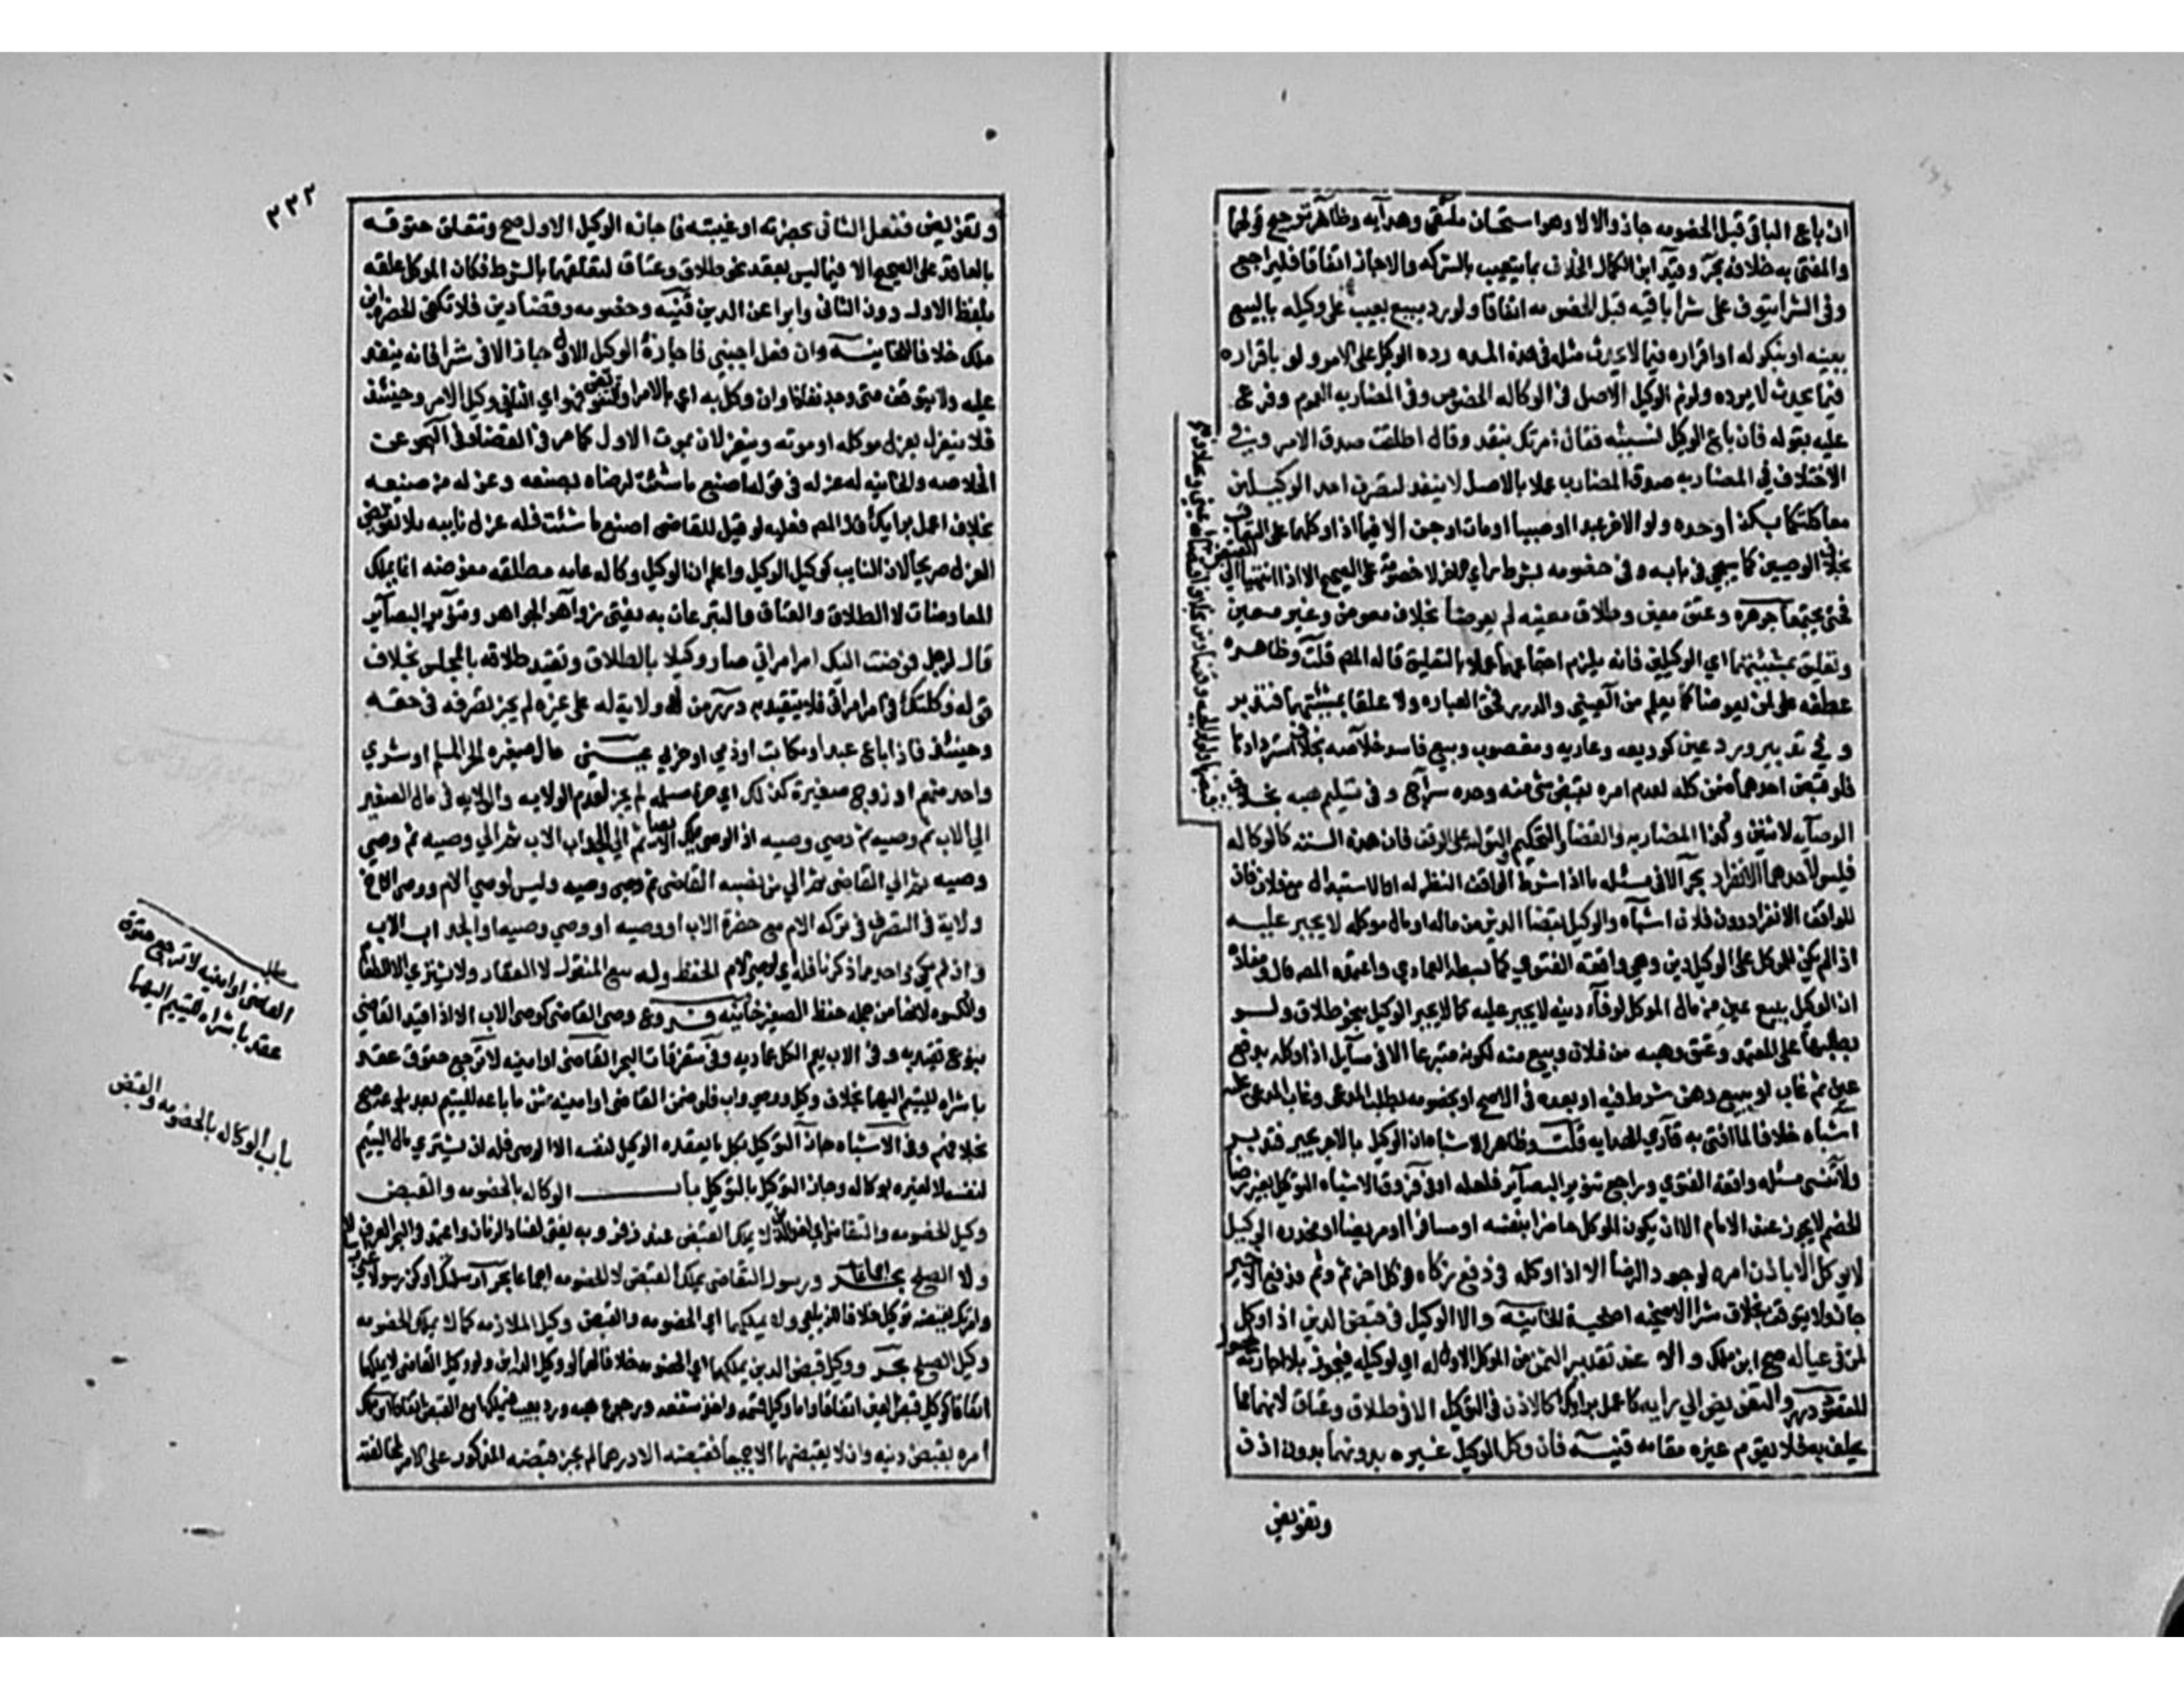 ان باع الباقي قبل الخصومه جاز والا لا وهو استحسان ملتقى وهدايه وظاهره ترجيح قولهما
والمفتى به خلافه بحر وقيد ابن الكمال الخلاف بما يتعيب بالشركه والا جاز اتفاقا فليراجع
وفي الشرا يتوقف على شرا باقيه قبل الخصومه اتفاقا ولو رد مبيع بعيب على وكيله بالبيع
ببينه او نكوله او اقراره فيما لا يحدث مثله في هذه المده رده الوكيل على الامر ولو باقراره
فيما يحدث لا يرده ولزم الوكيل الاصل في الوكاله الخصوص وفي المضاربه العموم وفرع
عليه بقوله فان باع الوكيل نسيئه فقال امرتك بنقد وقال اطلقت صدق الامر وفي
الاختلاف في المضاربه صدق المضارب عملا بالاصل لا ينفذ تصرف احد الوكيلين
معا كوكلتكما بكذا وحده ولو الاخر عبدا او صبيا او مات او جن الا فيما اذا وكلهما على التعاقب
بخلاف الوصيين كما سيجي في بابه وفي خصومه بشرط راي الاخر لا حضرته على الصحيح الا اذا انتهيا الى القبض
فحتى يجتمعا جوهره وعتق معين وطلاق معينه لم يعوضا بخلاف معوض وغير معين
وتعليق بمشيئتهما اي الوكيلين فانه يلزم اجتماعهما عملا بالتعليق قاله المص قلت وظاهره
عطفه على لم يعوضا كما يعلم من العيني والدرر فحق العباره ولا علقا بمشيئتهما فتدبر
وفي تدبير ورد عين كوديعه وعاريه ومغصوب ومبيع فاسد خلاصه بخلاف استردادها
فلو قبض احدهما ضمن كله لعدم امره بقبض شي منه وحده سراج وفي تسليم هبه بخلاف
قبضها
الوصايه لاثنين وكذا المضاربه والقضا والتحكيم والتوليه على الوقف فان هذه السته كالوكاله
فليس لاحدهما الانفراد بحر الا في مسئله ما اذا شرط الواقف النظر له او الاستبدال مع فلان فان
للواقف الانفراد دون فلان اشباه والوكيل بقضا الدين من ماله او مال موكله لا يجبر عليه
اذا لم يكن للموكل على الوكيل دين وهي واقعه الفتوى كما بسطه العمادي واعتمده المص قال ومفاده
ان الوكيل ببيع عين من مال الموكل لوفاء دينه لا يجبر عليه كما لا يجبر الوكيل بنحو طلاق ولو
بطلبها على المعتمد وعتق وهبه من فلان وبيع منه لكونه متبرعا الا في مسايل اذا وكله بدفع
عين ثم غاب او ببيع رهن شرط فيه او بعده في الاصح او بخصومه بطلب المدعي وغاب المدعى عليه
اشباه خلافا لما افتى به قاري الهدايه قلت وظاهر الاشباه ان الوكيل بالاجر يجبر فتدبر
ولا تنسى مسئله واقعه الفتوى وراجع تنوير البصاير فلعله اوفى وفي فروق الاشباه التوكيل بغير رضا
الخصم لا يجوز عند الامام الا ان يكون الموكل حاضرا بنفسه او مسافرا او مريضا او مخدره الوكيل
لا يوكل الا باذن امره لوجود الرضا الا اذا وكله في دفع زكاه فوكل اخر ثم وثم فدفع الاخير
جاز ولا يتوقف بخلاف شرا الاضحيه اضحيه الخانيه والا الوكيل في قبض الدين اذا وكل
من في عياله صح ابن ملك والا عند تقدير الثمن من الموكل الاول له اي لوكيله فيجوز بلا اجازته
درر والتفويض الى رايه كاعمل برايك كالاذن في التوكيل الا في طلاق وعتاق لانهما مما
يحلف به فلا يقوم غيره مقامه قنيه فان وكل الوكيل غيره بدونهما بدون اذن
وتفويض
٢٣٢
وتفويض ففعل الثاني بحضرته او غيبته فاجازه الوكيل الاول صح وتتعلق حقوقه
بالعاقد على الصحيح الا فيما ليس بعقد نحو طلاق وعتاق لتعلقهما بالشرط فكان الموكل علقه
بلفظ الاول دون الثاني وابرا عن الدين قنيه وخصومه وقضا دين فلا تكفي الحضره ابن
ملك خلافا للخانيه وان فعل اجنبي فاجازه الوكيل الاول جاز الا في شرا فانه ينفذ
عليه ولا يتوقف متى وجد نفاذا وان وكل به اي بالامر او تفويض فهو اي الثاني وكيل الامر وحينئذ
فلا ينعزل بعزل موكله او موته وينعزلان بموت الاول كما مر في القضا وفي البحر عن
الخلاصه والخانيه له عزله في قوله اصنع ما شئت لرضاه بصنعه وعزله من صنيعه
بخلاف اعمل برايك قال المص فعليه لو قيل للقاضي اصنع ما شئت فله عزل نايبه بلا تفويض
العزل صريحا لان النايب كوكيل الوكيل واعلم ان الوكيل وكاله عامه مطلقه مفوضه انما يملك
المعاوضات لا الطلاق والعتاق والتبرعات به يفتى زواهر الجواهر وتنوير البصاير
قال لرجل فوضت اليك امر امراتي صار وكيلا بالطلاق وتقيد طلاقه بالمجلس بخلاف
قوله وكلتك في امر امراتي فلا يتقيد به درر من لا ولاية له على غيره لم يجز تصرفه في حقه
وحينئذ فاذا باع عبد او مكاتب او ذمي او حربي عيني مال صغيره الحر المسلم او شرى
واحد منهم او زوج صغيرة كذلك اي حرة مسلمه لم يجز لعدم الولايه والولايه في مال الصغير
الى الاب ثم وصيه ثم وصي وصيه اذ الوصي يملك الايصا ثم الى الجد اب الاب ثم الى وصيه ثم وصي
وصيه ثم الى القاضي ثم الى من نصبه القاضي ثم وصي وصيه وليس لوصي الام ووصي الاخ
ولاية في التصرف في تركه الام مع حضرة الاب او وصيه او وصي وصيه او الجد اب الاب
وان لم يكن واحد مما ذكرنا فله اي لوصي الام الحفظ وله بيع المنقول لا العقار ولا يشتري الا الطعام
والكسوه لانهما من جمله حفظ الصغير خانيه فروع وصي القاضي كوصي الاب الا اذا قيد القاضي
بنوع تقيد به وفي الاب يعم الكل عماديه وفي متفرقات البحر القاضي او امينه لا ترجع حقوق عقد
باشراه لليتيم اليهما بخلاف وكيل ووصي واب فلو ضمن القاضي او امينه ثمن ما باعه لليتيم بعد بلوغه صح
بخلافهم وفي الاشباه جاز التوكيل بكل ما يعقده الوكيل لنفسه الا الوصي فله ان يشتري مال اليتيم
لنفسه لا لغيره بوكاله وجاز التوكيل بالتوكيل باب الوكاله بالخصومه والقبض
وكيل الخصومه والتقاضي اي اخذ الدين لا يملك القبض عند زفر وبه يفتى لفساد الزمان واعتمد في البحر العرف
ولا الصلح اجماعا بحر ورسول التقاضي يملك القبض لا الخصومه اجماعا بحر ارسلتك او كن رسولا عني
وامرتك بقبضه توكيل خلافا للزيلعي ولا يملكهما اي الخصومه والقبض وكيل الملازمه كما لا يملك الخصومه
وكيل الصلح بحر ووكيل قبض الدين يملكها اي الخصومه خلافا لهما لو وكيل الداين ولو وكيل القاضي لا يملكها
اتفاقا كوكيل قبض العين اتفاقا واما وكيل قسمه واخذ شفعه ورجوع هبه ورد بعيب فيملكها مع القبض اتفاقا ابن ملك
امره بقبض دينه وان لا يقبضه الا جميعا فقبضه الا درهما لم يجز قبضه المذكور على الامر لمخالفته
مطلب
القاضي او امينه لا ترجع حقوق
عقد باشراه لليتيم اليهما
باب الوكاله بالخصومه والقبض